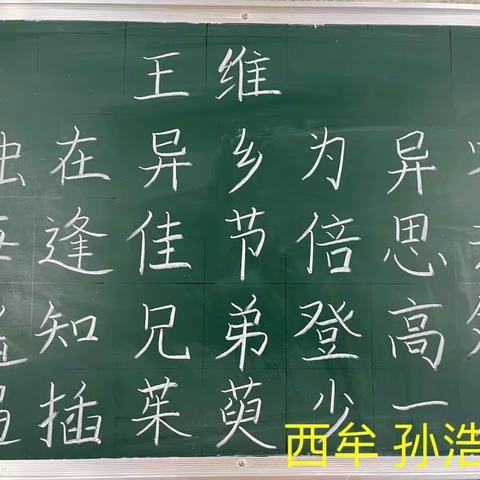 王维
在异乡为异
逢佳节倍思
知兄弟登高
插茱萸少一
西牟 孙浩